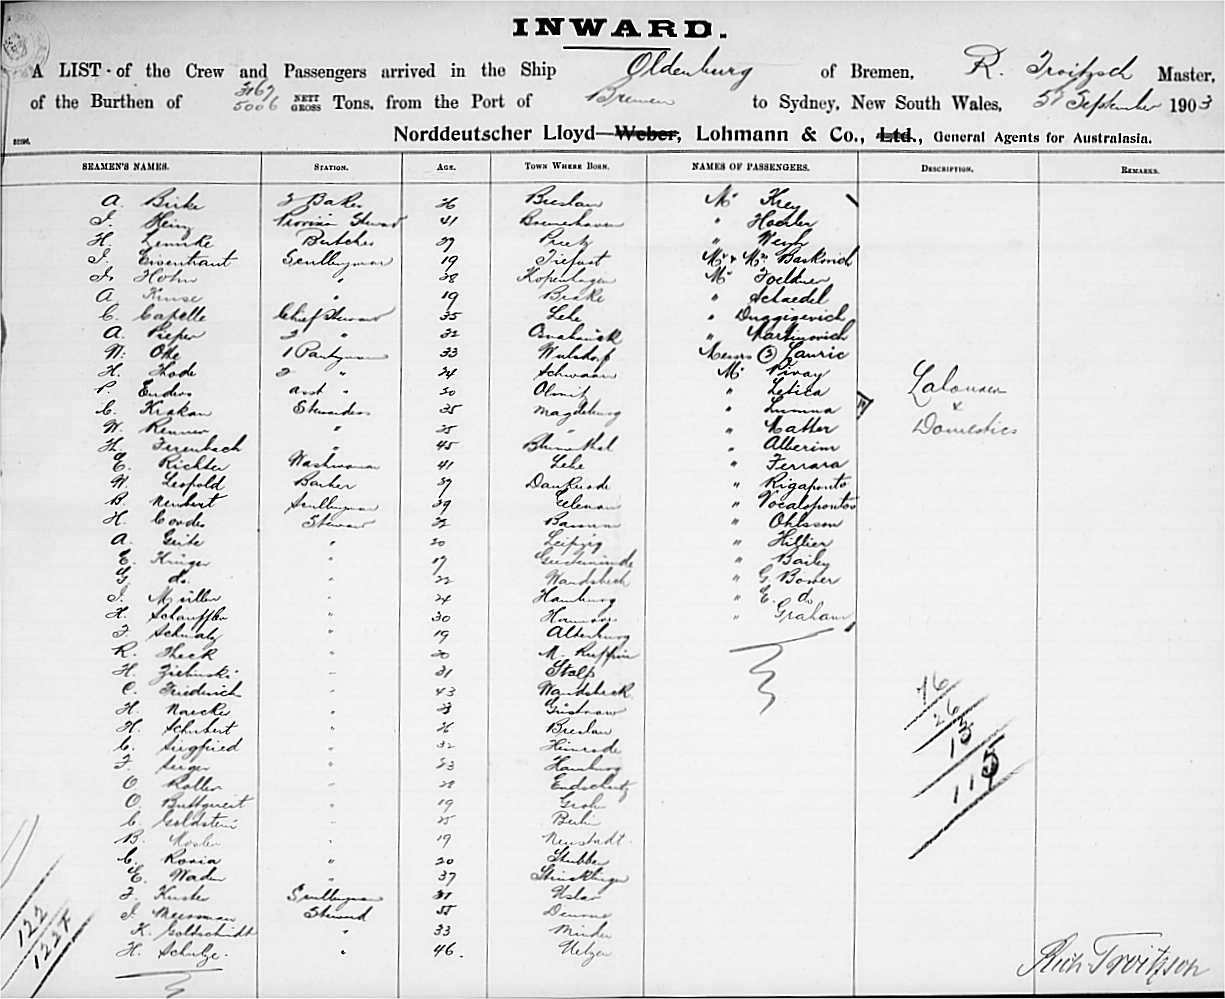 INWARD.
A LIST of the Crew and Passengers arrived in the Ship Oldenburg of Bremen, R. Troitzsch Master,
of the Burthen of 5006 NETT GROSS Tons, from the Port of Bremen to Sydney, New South Wales, 5th September 1903
Norddeutscher Lloyd—Weber, Lohmann & Co., Ltd., General Agents for Australasia.
SEAMEN'S NAMES. STATION. AGE. TOWN WHERE BORN. NAMES OF PASSENGERS. DESCRIPTION. REMARKS.
A. Birke 2 Baker 26 Breslau Mr Krey
Heinz 41 Bremerhaven " Hoehler
H. Lemke Butcher 27 "
Eisentraut Sculleryman 19 Tiefurt Mr & Mrs Baskovich
Hohn " 38 Kopenhagen Mr Foelkner
A. Kruse " 19 Brake " Schaedel
C. Capelle Chief Steward 35 Lehe "
A. Pieper 2 " 32 Osnabrück " Martinovich
W. Otte 1 Pantryman 33 Wulsdorf Messrs (3) Lauric
H. Thode 2 " 24 Schwaan Mr Pivay
P. Enders asst " 30 Olmitz " Letica
C. Krakau Stewardess 35 Magdeburg " Lumma
Labourers
&
Domestics
W. Renner " 25 " "
H. " 45 Blumenthal " Alberini
E. Richter Washwoman 41 Lehe " Ferrara
W. Leopold Barber 39 " Rigaponto
B. Neubert Sculleryman 39 " Vocaloponto
H. Cordes Steward 22 Bassum " Ohlsson
A. " 20 Leipzig " Hillier
E. Krüger " 17 " Bailey
G. do. " 22 Wandsbeck " G. Bower
J. Müller " 24 Hamburg " E. do
H. Schauffler " 30 Hannover " Graham
F. Schmalz " 19 Altenburg
R. Heck " 20 N. Ruppin
H. Zielinski " 31 Stolp
C. Friederich " 43 Wandsbeck
H. Naecke " Güstrow
H. Schubert " 26 Breslau
C. Siegfried " 32
F. " 23 Hamburg
O. Roller " 28
O. Buttgereit " 19 Grohn
C. Goldstein " 25 Berlin
B. " 19 Neustadt
C. " 20 Stubben
E. " 37
F. Kuster Sculleryman 31 Uslar
J. Meersman Steward 35
K. Goldschmidt " 33 Minden
H. Schulze " 46. Uelzen
76
26
13
115
122
1227
Rich. Troitzsch